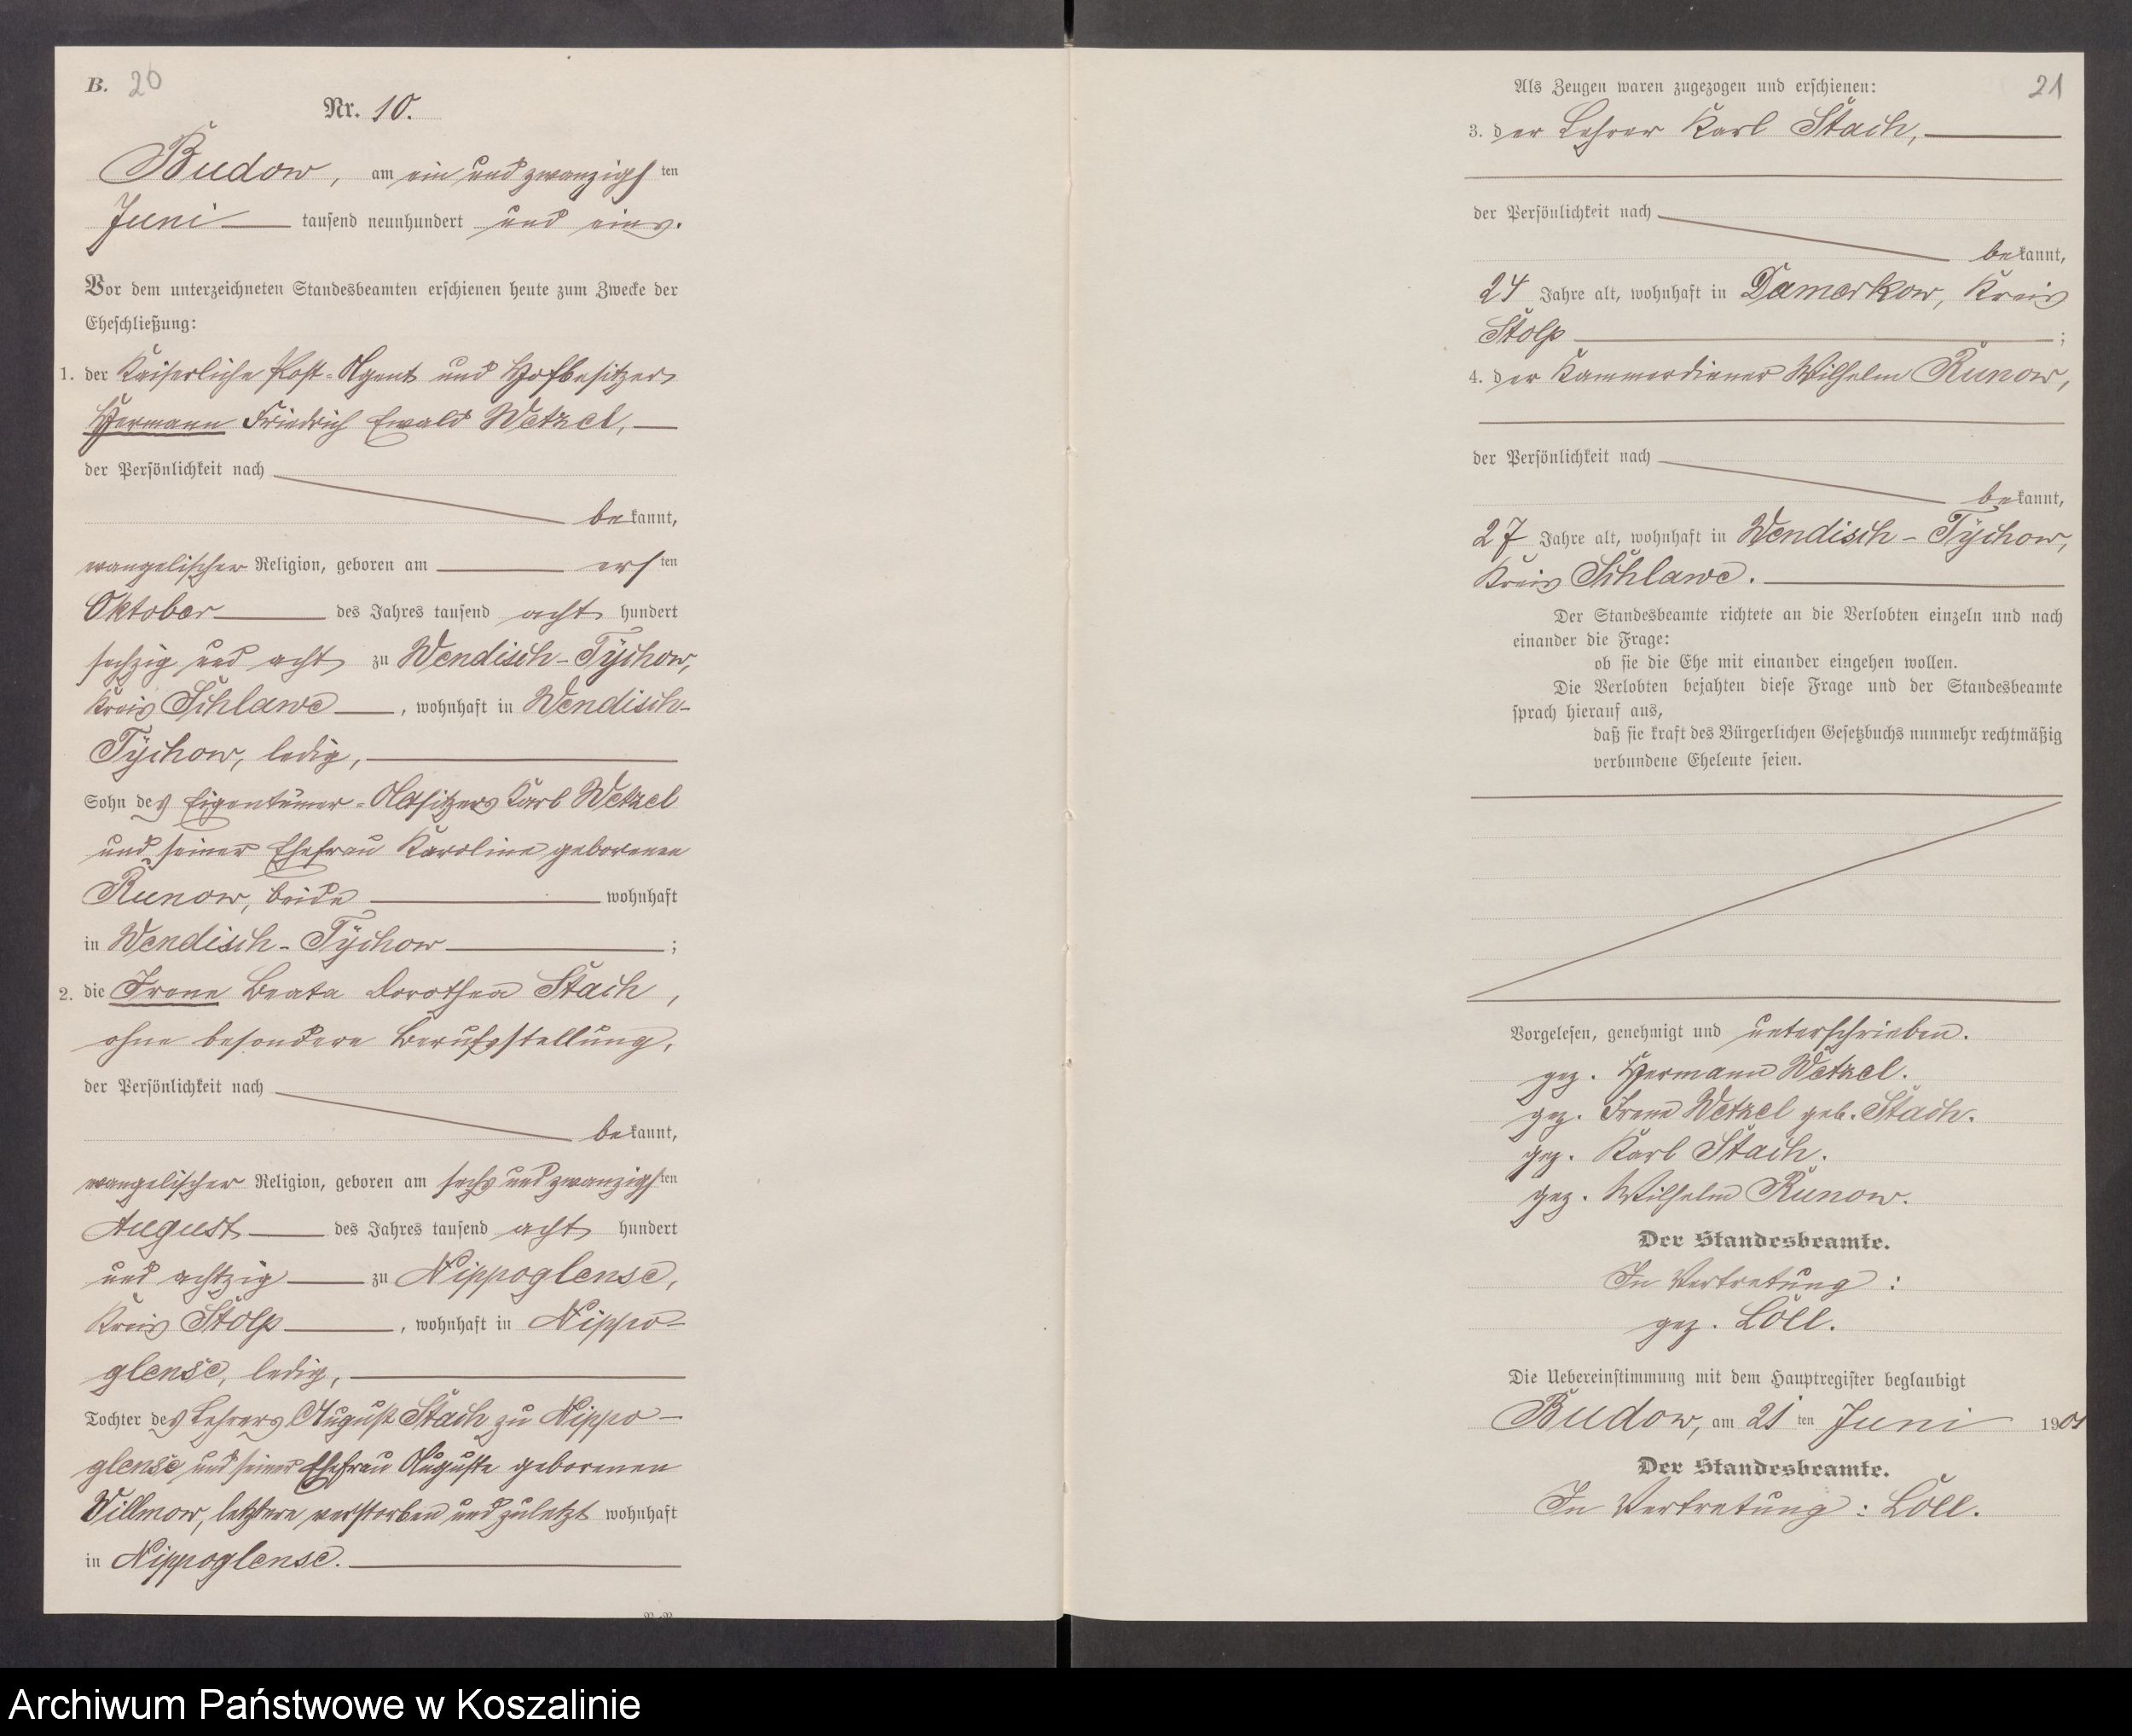 B. 20
Nr. 10.
Budow, am ein und zwanzigsten
Juni tausend neunhundert und eins.
Vor dem unterzeichneten Standesbeamten erschienen heute zum Zwecke der
Eheschließung:
1. der Kaiserliche Post-Agent und Hofbesitzer
Hermann Friedrich Ewald Wetzel,
der Persönlichkeit nach
bekannt,
evangelischer Religion, geboren am ersten
Oktober des Jahres tausend acht hundert
sechzig und acht zu Wendisch-Tychow,
Kreis Schlawe, wohnhaft in Wendisch-
Tychow, ledig,
Sohn des Eigentümer-Altsitzers Karl Wetzel
und seiner Ehefrau Karoline geborenen
Runow, beide wohnhaft
in Wendisch-Tychow;
2. die Irene Beata Dorothea Stach,
ohne besondere Berufsstellung,
der Persönlichkeit nach
bekannt,
evangelischer Religion, geboren am sechs und zwanzigsten
August des Jahres tausend acht hundert
und achtzig zu Nippoglense,
Kreis Stolp, wohnhaft in Nippo-
glense, ledig,
Tochter des Lehrers August Stach zu Nippo-
glense und seiner Ehefrau Auguste geborenen
Villmow, letztere verstorben und zuletzt wohnhaft
in Nippoglense.
21
Als Zeugen waren zugezogen und erschienen:
3. der Lehrer Karl Stach,
der Persönlichkeit nach
bekannt,
24 Jahre alt, wohnhaft in Damerkow, Kreis
Stolp;
4. der Kammerdiener Wilhelm Runow,
der Persönlichkeit nach
bekannt,
27 Jahre alt, wohnhaft in Wendisch-Tychow,
Kreis Schlawe.
Der Standesbeamte richtete an die Verlobten einzeln und nach
einander die Frage:
ob sie die Ehe mit einander eingehen wollen.
Die Verlobten bejahten diese Frage und der Standesbeamte
sprach hierauf aus,
daß sie kraft des Bürgerlichen Gesetzbuchs nunmehr rechtmäßig
verbundene Eheleute seien.
Vorgelesen, genehmigt und unterschrieben.
gez. Hermann Wetzel.
gez. Irene Wetzel geb. Stach.
gez. Karl Stach.
gez. Wilhelm Runow.
Der Standesbeamte.
In Vertretung:
gez. Löll.
Die Uebereinstimmung mit dem Hauptregister beglaubigt
Budow, am 21ten Juni 1901
Der Standesbeamte.
In Vertretung: Löll.
Archiwum Państwowe w Koszalinie